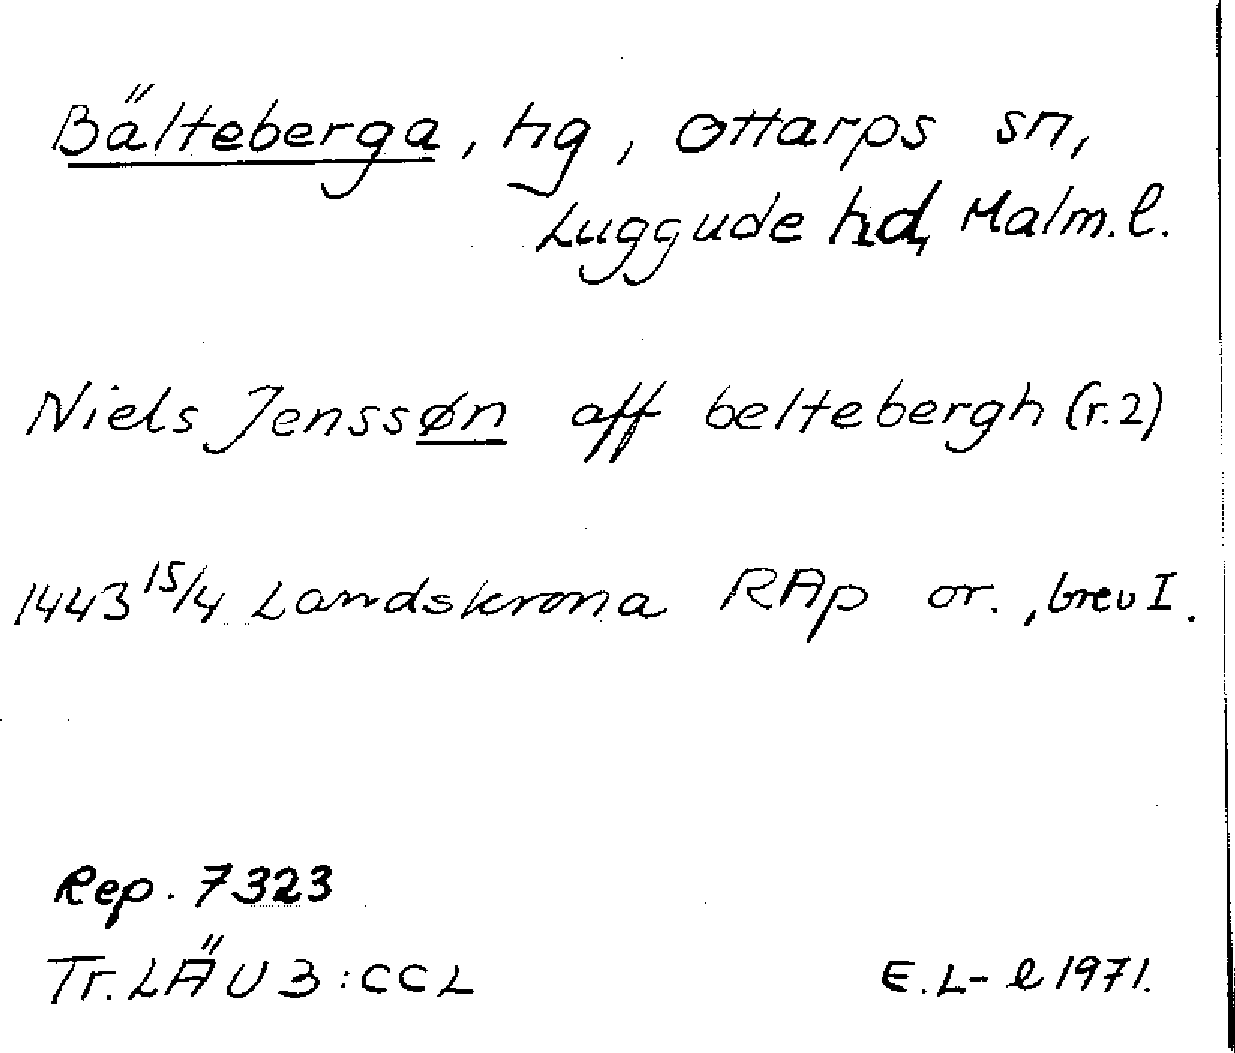 Bälteberga, hg, Ottarps sn,
Luggude hd, Malm. l.
Niels Jenssøn aff beltebergh (r.2)
1443 15/4 Landskrona RAp or., brev I.
Rep. 7323
Tr. LÄU 3: CCL
E. L-l 1971.